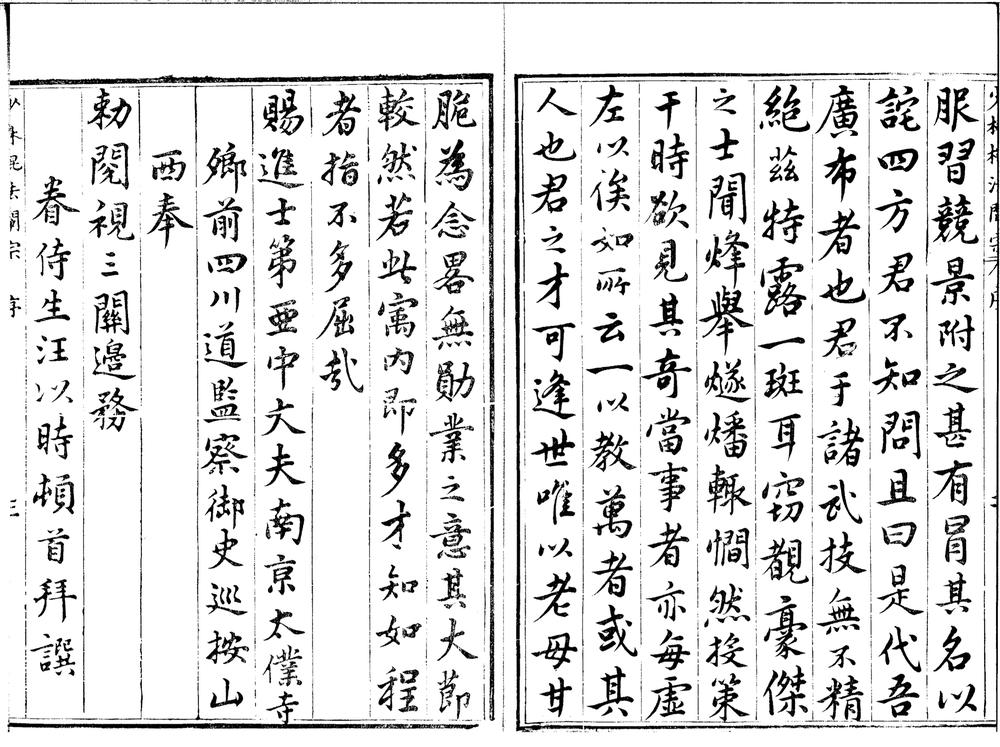 服習競景附之甚有冒其名以
詫四方君不知問且曰是代吾
廣布者也君于諸武技無不精
絕茲特露一斑耳竊觀豪傑
之士聞烽舉燧燔輒憪然投策
干時欲見其奇當事者亦每虛
左以俟如所云一以教萬者或其
人也君之才可逢世唯以老母甘
脆為念畧無勛業之意其大節
較然若此寓內即多才〻知如程
者指不多屈哉
賜進士第亞中大夫南京太僕寺
卿前四川道監察御史巡按山
西奉
勅閱視三關邊務
眷侍生汪以時頓首拜譔
少林棍法闡宗 序 三